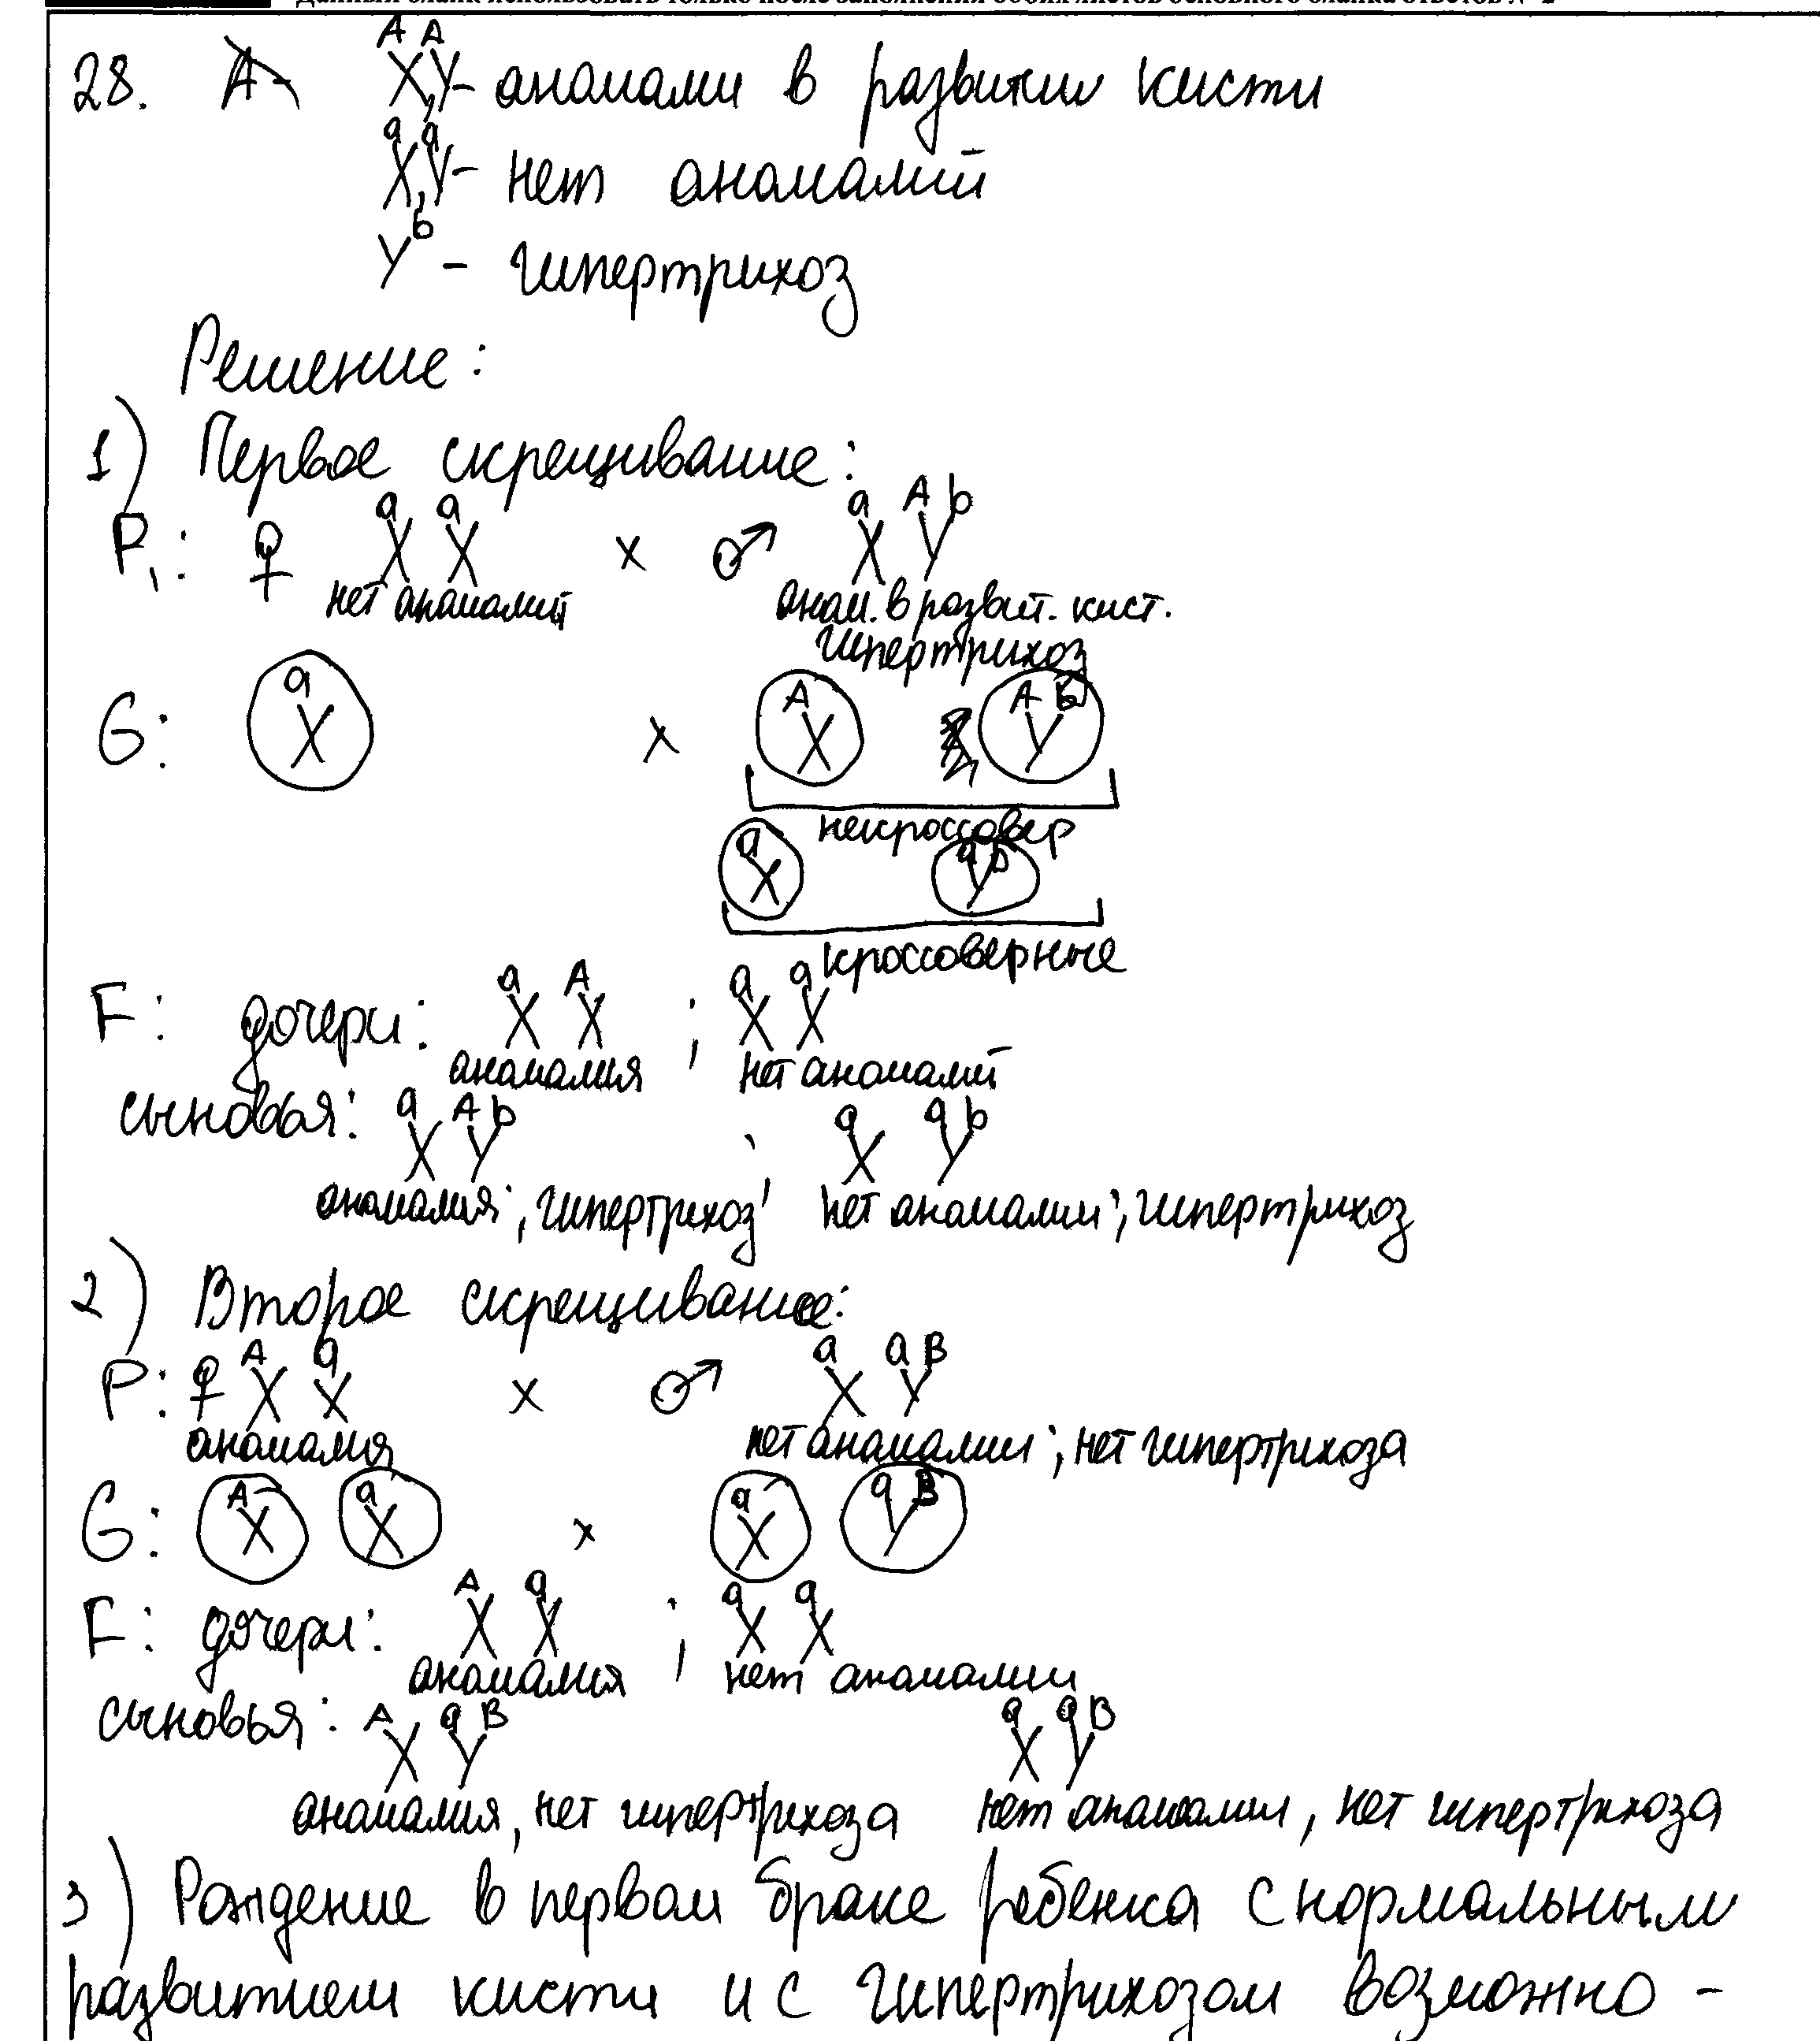 Данный бланк использовать только после заполнения обоих листов основного бланка ответов № 2
28. A- X^A, Y^A - аномалии в развитии кисти
X^a, Y^a - нет аномалий
Y^b - гипертрихоз
Решение:
1) Первое скрещивание:
P₁: ♀ X^a X^a x ♂ X^a Y^Ab
нет аномалий аном. в развит. кист.
гипертрихоз
G: X^a x X^A Y^Ab
некроссовер
X^a Y^ab
кроссоверные
F: дочери: X^a X^A ; X^a X^a
аномалия нет аномалий
сыновья: X^a Y^Ab ; X^a Y^ab
аномалия; гипертрихоз нет аномалии; гипертрихоз
2) Второе скрещивание:
P: ♀ X^A X^a x ♂ X^a Y^aB
аномалия нет аномалии; нет гипертрихоза
G: X^A X^a x X^a Y^aB
F: дочери: X^A X^a ; X^a X^a
аномалия нет аномалии
сыновья: X^A Y^aB X^a Y^aB
аномалия, нет гипертрихоза нет аномалии, нет гипертрихоза
3) Рождение в первом браке ребенка с нормальным
развитием кисти и с гипертрихозом возможно -